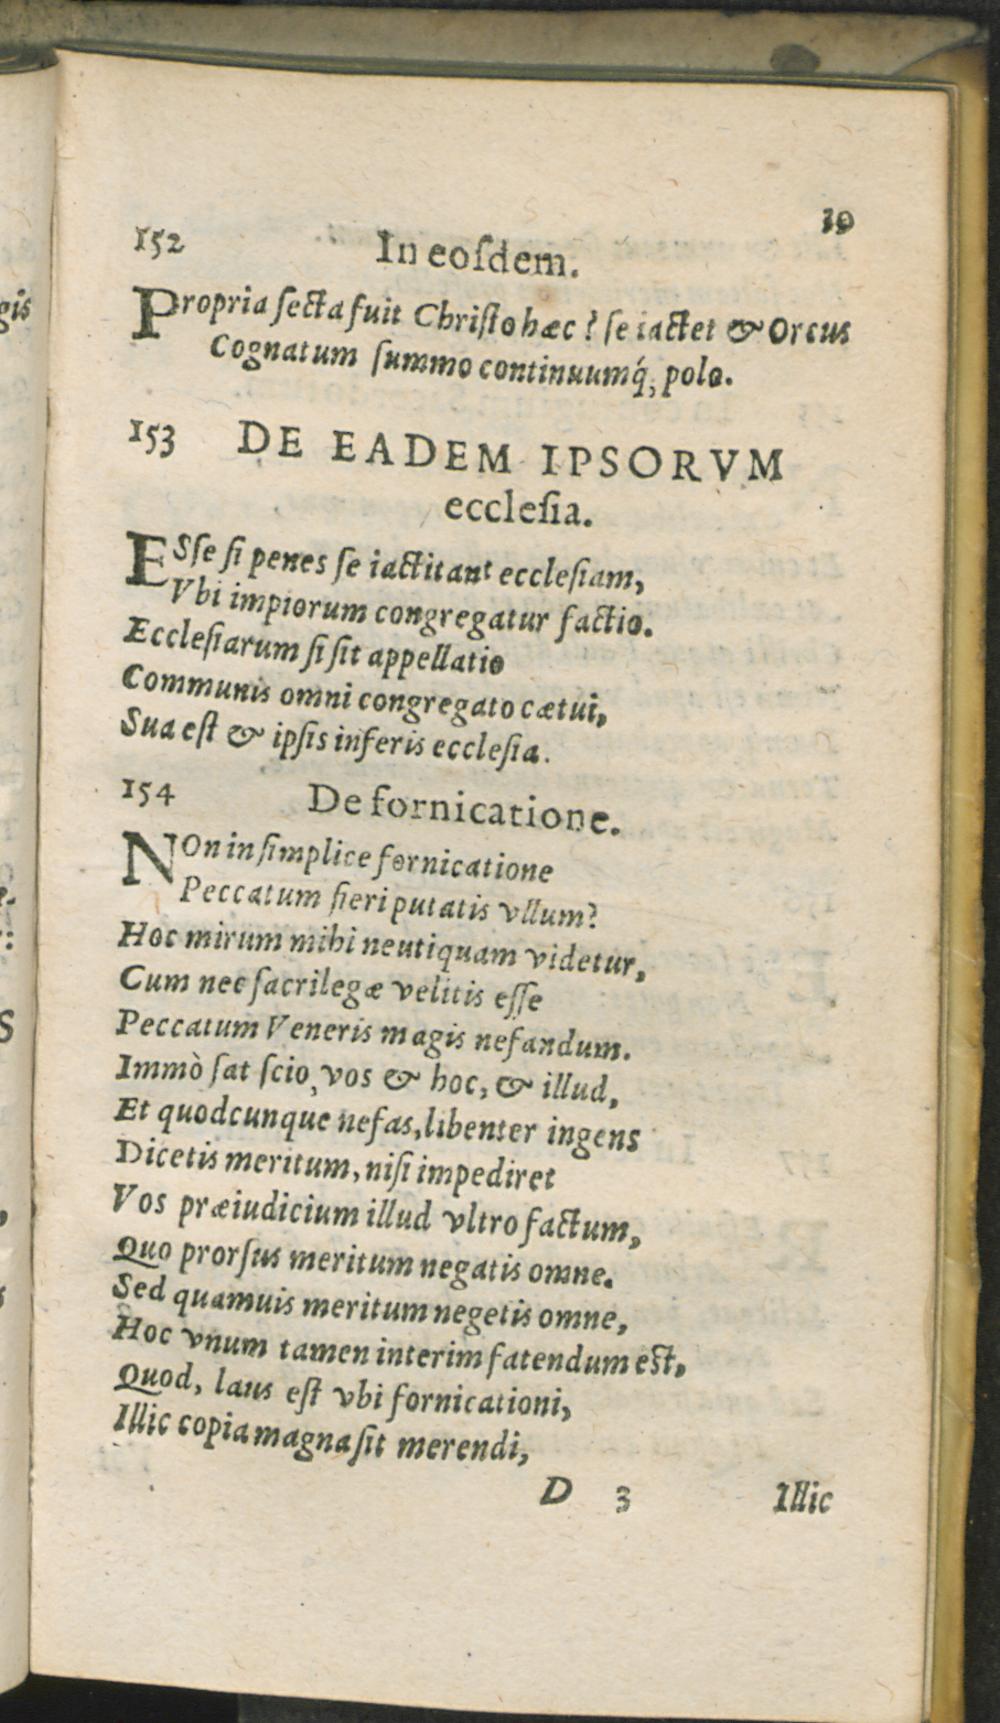 39
152 In eoſdem.
Propria ſecta fuit Chriſto hæc? ſe iactet & Orcus
Cognatum ſummo continuumq́; polo.
153 DE EADEM IPSORVM
eccleſia.
ESſe ſi penes ſe iactitant eccleſiam,
Vbi impiorum congregatur factio.
Eccleſiarum ſi ſit appellatio
Communis omni congregato cætui,
Sua eſt & ipſis inferis eccleſia.
154 De fornicatione.
NOn in ſimplice fornicatione
Peccatum fieri putatis vllum?
Hoc mirum mihi neutiquam videtur,
Cum nec ſacrilegæ velitis eſſe
Peccatum Veneris magis nefandum.
Immò ſat ſcio, vos & hoc, & illud,
Et quodcunque nefas, libenter ingens
Dicetis meritum, niſi impediret
Vos præiudicium illud vltro factum,
Quo prorſus meritum negatis omne.
Sed quamuis meritum negetis omne,
Hoc vnum tamen interim fatendum eſt,
Quod, laus eſt vbi fornicationi,
Illic copia magna ſit merendi,
D 3 Illic